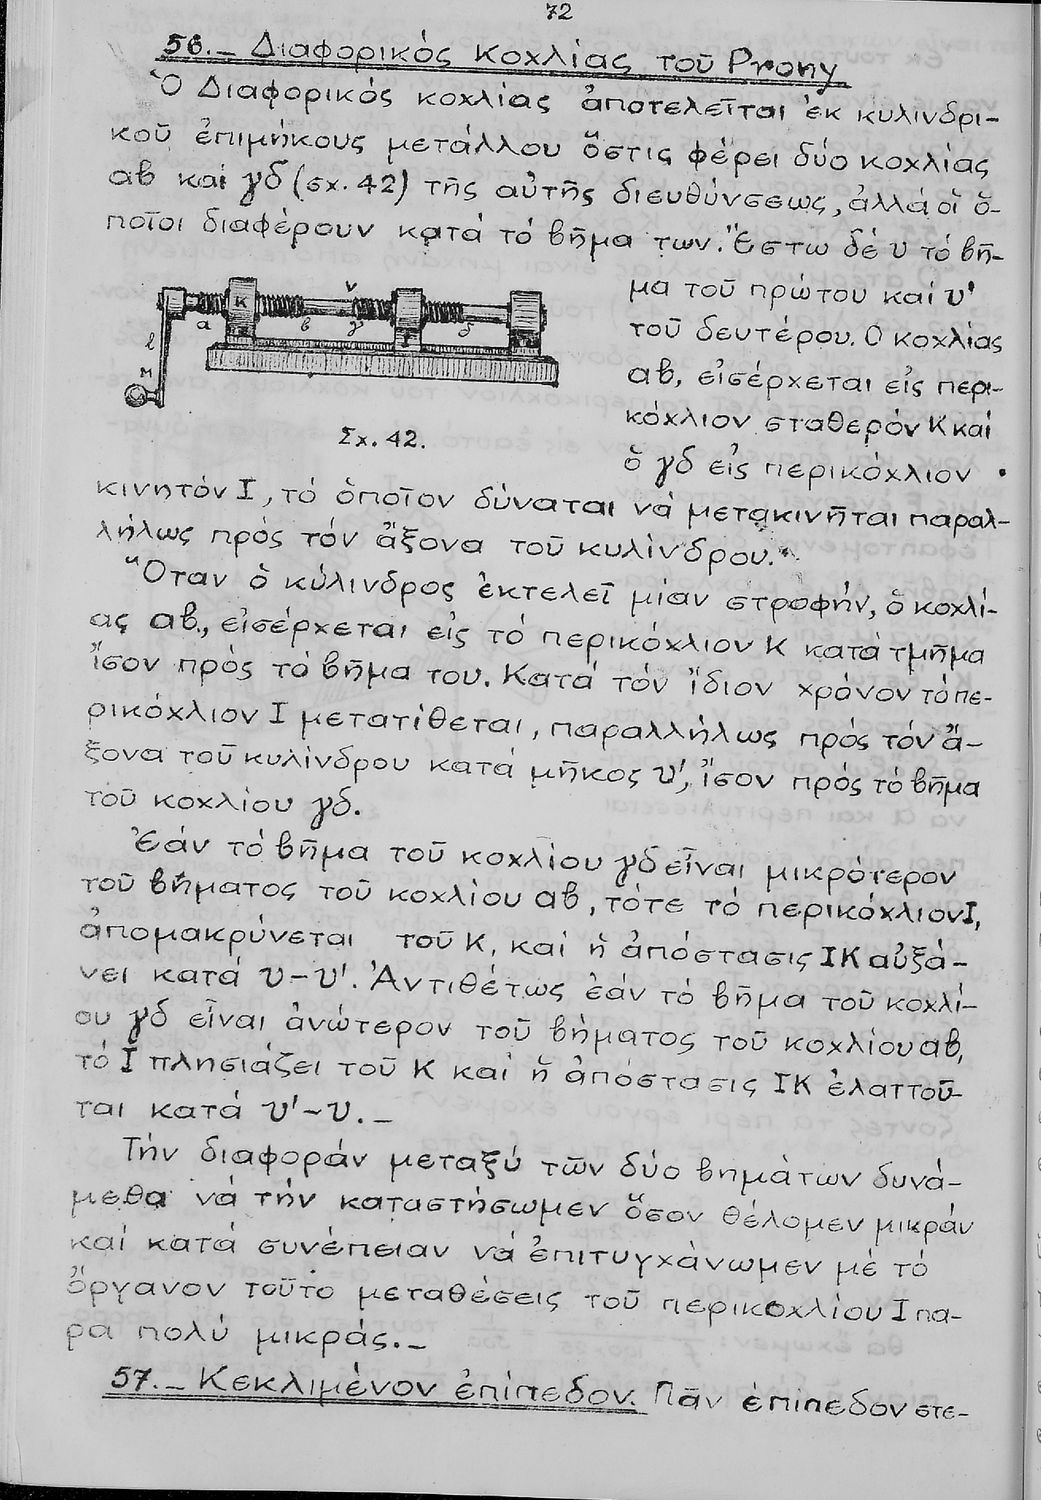 72
56.— Διαφορικός κοχλίας τοῦ Prony
Ὁ Διαφορικός κοχλίας ἀποτελεῖται ἐκ κυλινδρι-
κοῦ ἐπιμήκους μετάλλου ὅστις φέρει δύο κοχλίας
αβ καί γδ (σχ. 42) τῆς αὐτῆς διευθύνσεως, ἀλλά οἵ ὅ-
ποῖοι διαφέρουν κατά τό βῆμα των. Ἔστω δέ υ τό βῆ-
μα τοῦ πρώτου καί υ'
τοῦ δευτέρου. Ο κοχλίας
αβ, εἰσέρχεται εἰς περι-
κόχλιον σταθερόν Κ καί
ὅ γδ εἰς περικόχλιον
K
V
α
β
γ
δ
I
l
M
Σχ. 42.
κινητόν Ι, τό ὁποῖον δύναται νά μετακινῆται παραλ-
λήλως πρός τόν ἄξονα τοῦ κυλίνδρου.
Ὅταν ὅ κύλινδρος ἐκτελεῖ μίαν στροφήν, ὅ κοχλί-
ας αβ., εἰσέρχεται εἰς τό περικόχλιον Κ κατά τμῆμα
ἴσον πρός τό βῆμα του. Κατά τόν ἴδιον χρόνον τό πε-
ρικόχλιον Ι μετατίθεται, παραλλήλως πρός τόν ἄ-
ξονα τοῦ κυλίνδρου κατά μῆκος υ', ἴσον πρός τό βῆμα
τοῦ κοχλίου γδ.
Ἐάν τό βῆμα τοῦ κοχλίου γδ εἶναι μικρότερον
τοῦ βήματος τοῦ κοχλίου αβ, τότε τό περικόχλιον Ι,
ἀπομακρύνεται τοῦ Κ, καί ἥ ἀπόστασις ΙΚ αὐξά-
νει κατά υ-υ'. Ἀντιθέτως ἐάν τό βῆμα τοῦ κοχλί-
ου γδ εἶναι ἀνώτερον τοῦ βήματος τοῦ κοχλίου αβ,
τό Ι πλησιάζει τοῦ Κ καί ἥ ἀπόστασις ΙΚ ἐλαττοῦ-
ται κατά υ'-υ.—
Τήν διαφοράν μεταξύ τῶν δύο βημάτων δυνά-
μεθα νά τήν καταστήσωμεν ὅσον θέλομεν μικράν
καί κατά συνέπειαν νά ἐπιτυγχάνωμεν μέ τό
ὄργανον τοῦτο μεταθέσεις τοῦ περικοχλίου Ι πα-
ρα πολύ μικράς.—
57.— Κεκλιμένον ἐπίπεδον. Πᾶν ἐπίπεδον στε-